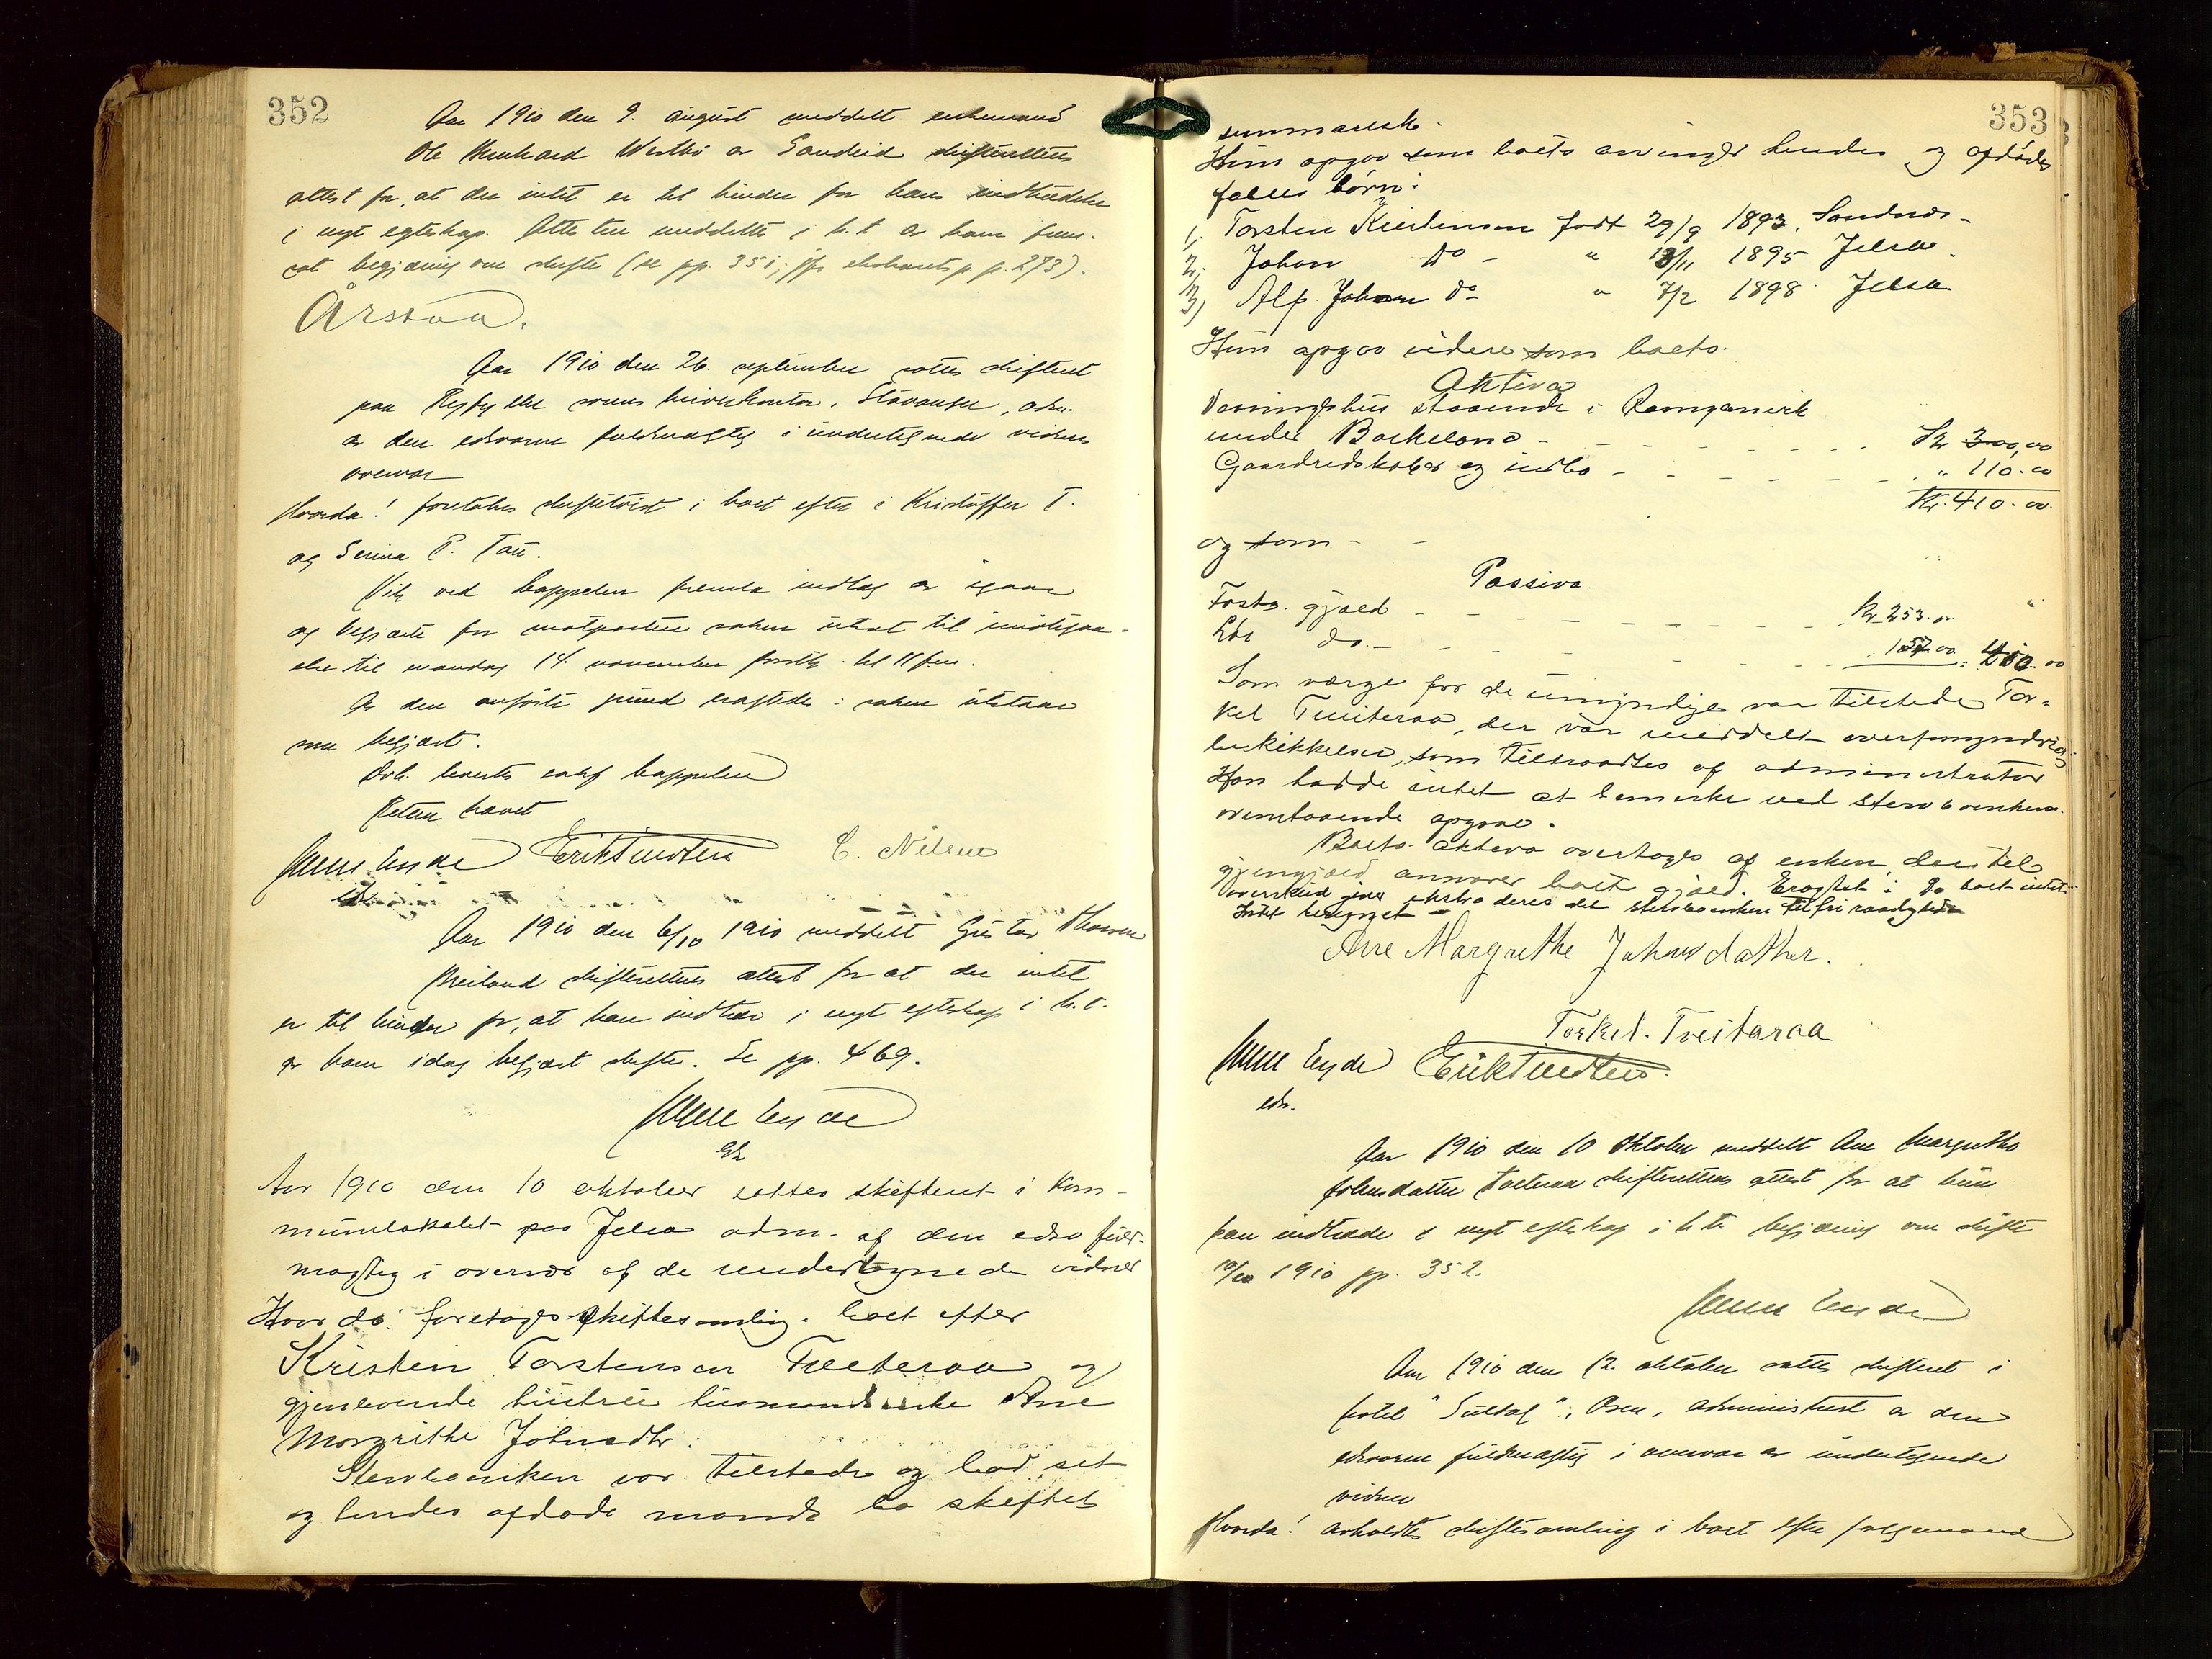 352
Aar 1910 den 9. august meddelt enkemand
Ole Vestbö av Sandeid skifterettens
attest for, at der intet er til hinder for hans indtrædelse
i nyt egteskap. Attesten meddeltes i h.t. av ham frem-
sat begjæring om skifte (se pp. 351; jfr p. 273).
Årsvoll.
Aar 1910 den 26. september sattes skifteret
paa Ryfylke sorenskriverkontor, Stavanger, adm.
av den edsvorne fuldmægtig i undertegnede vidners
overvær
Hvorda! foretokes skiftetvist i boet efter Kristoffer T.
og Serina P. Tou.
Vik ved Kappelen fremla indlæg av igaar
og begjærte for motparten saken utsat til imøtegaa-
else til mandag 14. november førstk. kl 11 fm.
Av den anførte grund eragtedes: saken utstaar
som begjært.
Dok. levertes sakf. Kappelen
Retten hævet
Erik Tuedten C. Nilsen
edsv.
Aar 1910 den 6/10 1910 meddelt Gustav
skifterettens attest for at der intet
er til hinder for, at han indtræder i nyt egteskap i h.t.
av ham idag begjært skifte. Se pp. 469.
Aar 1910 den 10 oktober sattes skifteret i Kom-
munelokalet paa Jelsa adm. af den edsv fuld-
mægtig i overvær af de undertegnede vidner
Hvor da: foretoges skiftesamling i boet efter
Kristen Torstensen Tveiteraa og
gjenlevende hustru husmandsenke Ane
Margrethe Johnsdtr.
Stervboenken var tilstede og bad sit
og hendes afdøde mands bo skiftet
353
summarisk.
Hun opgav som boets arvinger hendes og afdødes
fælles børn:
1, Torsten Kristensen født 29/9 1893, Sandnæs-
2, Johan do - " 13/11 1895 Jelsa.
3) Alf Johan do- " 7/2 1898 Jelsa
Hun opgav videre som boets
Aktiva
Vaaningshus staaende i
under Barkeland - Kr 300,00
Gaardredskaber og indbo - " 110.00
Kr. 410.00.
og som -
Passiva
Fasts. gjæld - Kr 253.00
Løs do. - 157.00 = 410.00
Som værge for de umyndige var tilstede Tor-
kel Tveiteraa, der var meddelt overformynderi-
beskikkelse, som tiltraadtes af administrator
Han hadde intet at bemerke ved stervboenkens
ovenstaaende opgave.
Boets aktiva overtoges af enken, der til
gjengjæld ansvarer boets gjæld. Eragtet: Da boet intet
overskud giver ekstraderes det stervboenken til fri raadighed
Intet beregnet -
Ane Margrethe Johnsdather.
Torkel. Tveitaraa
Erik Tuedten.
edsv.
Aar 1910 den 10 oktober meddelt Ane Margrethe
Johnsdatter Tveteraa skifterettens attest for at hun
kan indtræde i nyt egteskap i h.t. begjæring om skifte
10/10 1910 pp. 352.
Aar 1910 den 12. oktober sattes skifteret i
hotel "Suldal", Osen, administrert av den
edsvorne fuldmægtig i overvær av undertegnede
vidner
Hvorda! avholdtes skiftesamling i boet efter folgemand